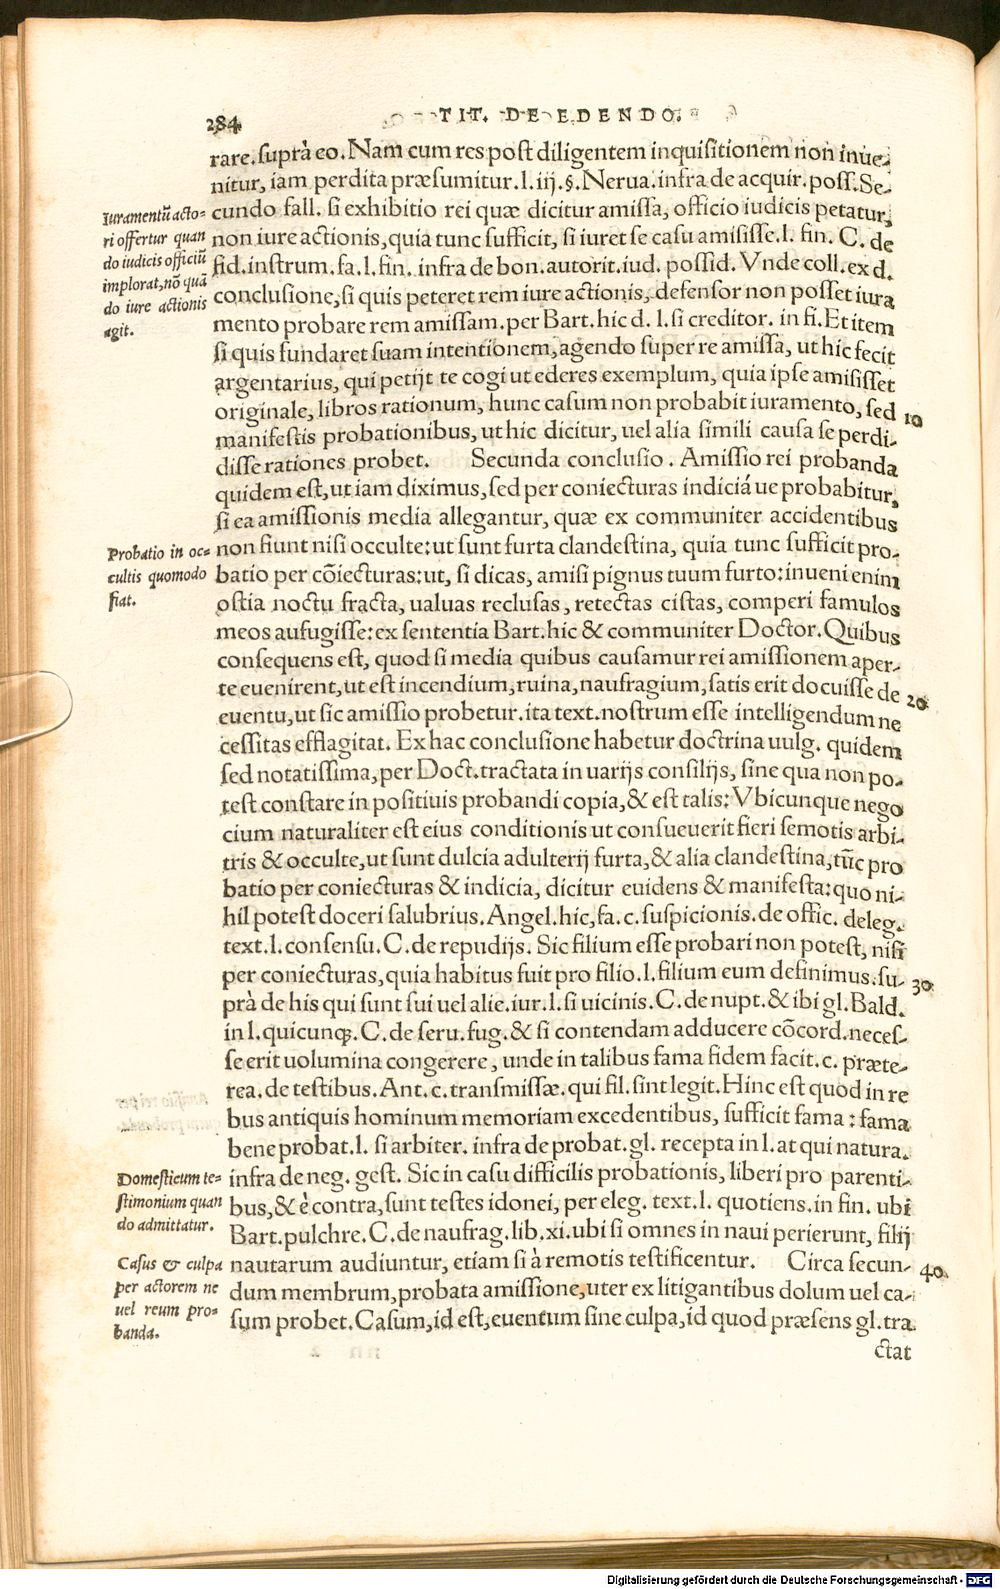 284
TIT. DE EDENDO.
rare. suprà eo. Nam cum res post diligentem inquisitionem non inue-
nitur, iam perdita præsumitur. l. iij. §. Nerua. infra de acquir. poss. Se-
cundo fall. si exhibitio rei quæ dicitur amissa, officio iudicis petatur,
non iure actionis, quia tunc sufficit, si iuret se casu amisisse. l. fin. C. de
fid. instrum. fa. l. fin. infra de bon. autorit. iud. possid. Vnde coll. ex d.
conclusione, si quis peteret rem iure actionis, defensor non posset iura
mento probare rem amissam. per Bart. hic d. l. si creditor. in fi. Et item
si quis fundaret suam intentionem, agendo super re amissa, ut hic fecit
argentarius, qui petijt te cogi ut ederes exemplum, quia ipse amisisset
originale, libros rationum, hunc casum non probabit iuramento, sed
manifestis probationibus, ut hic dicitur, uel alia simili causa se perdi-
disse rationes probet. Secunda conclusio. Amissio rei probanda
quidem est, ut iam diximus, sed per coniecturas indiciá ue probabitur,
si ea amissionis media allegantur, quæ ex communiter accidentibus
non fiunt nisi occulte: ut sunt furta clandestina, quia tunc sufficit pro-
batio per cōiecturas: ut, si dicas, amisi pignus tuum furto: inueni enim
ostia noctu fracta, ualuas reclusas, retectas cistas, comperi famulos
meos aufugisse: ex sententia Bart. hic & communiter Doctor. Quibus
consequens est, quod si media quibus causamur rei amissionem aper-
te euenirent, ut est incendium, ruina, naufragium, satis erit docuisse de
euentu, ut sic amissio probetur. ita text. nostrum esse intelligendum ne
cessitas efflagitat. Ex hac conclusione habetur doctrina uulg. quidem
sed notatissima, per Doct. tractata in uarijs consilijs, sine qua non po-
test constare in positiuis probandi copia, & est talis: Vbicunque nego
cium naturaliter est eius conditionis ut consueuerit fieri semotis arbi-
tris & occulte, ut sunt dulcia adulterij furta, & alia clandestina, tūc pro
batio per coniecturas & indicia, dicitur euidens & manifesta: quo ni-
hil potest doceri salubrius. Angel. hic, fa. c. suspicionis. de offic. deleg.
text. l. consensu. C. de repudijs. Sic filium esse probari non potest, nisi
per coniecturas, quia habitus fuit pro filio. l. filium eum definimus. su-
prà de his qui sunt sui uel alie. iur. l. si uicinis. C. de nupt. & ibi gl. Bald.
in l. quicunq;. C. de seru. fug. & si contendam adducere cōcord. neces-
se erit uolumina congerere, unde in talibus fama fidem facit. c. præte-
rea. de testibus. Ant. c. transmissæ. qui fil. sint legit. Hinc est quod in re
bus antiquis hominum memoriam excedentibus, sufficit fama: fama
bene probat. l. si arbiter. infra de probat. gl. recepta in l. at qui natura.
infra de neg. gest. Sic in casu difficilis probationis, liberi pro parenti-
bus, & è contra, sunt testes idonei, per eleg. text. l. quotiens. in fin. ubi
Bart. pulchre. C. de naufrag. lib. xi. ubi si omnes in naui perierunt, filij
nautarum audiuntur, etiam si à remotis testificentur. Circa secun-
dum membrum, probata amissione, uter ex litigantibus dolum uel ca-
sum probet. Casum, id est, euentum sine culpa, id quod præsens gl. tra
ctat
Iuramentū acto-
ri offertur quan
do iudicis officiū
implorat, nō quā
do iure actionis
agit.
Probatio in oc-
cultis quomodo
fiat.
Domesticum te-
stimonium quan
do admittatur.
Casus & culpa
per actorem ne
uel reum pro-
banda.
10
20
30
40
Digitalisierung gefördert durch die Deutsche Forschungsgemeinschaft - DFG